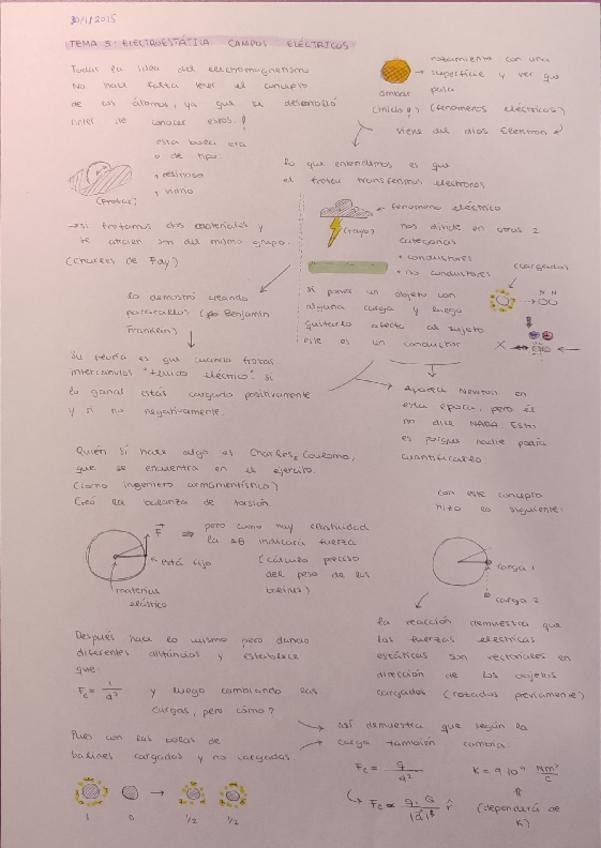 30/1/2015
TEMA 5: ELECTROESTÁTICA CAMPOS ELÉCTRICOS
Todas la idea del electromagnetismo
No hace falta tener el concepto
de los átomos, ya que se desarrolló
antes de conocer estos.
ambar
(inicio)
rozamiento con una
superficie y ver que
pasa
(fenómenos eléctricos)
viene del dios Elektron
esta busca era
o de tipo:
resinoso
vidrio
(frotar)
→ si frotamos dos materiales y
se atraen son del mismo grupo.
(Charles de Fay)
lo que entendemos es que
al frotar transferimos electrones
fenómeno eléctrico
(rayo)
nos divide en otras 2
categorías
• conductores
• no conductores
(cargados)
N N
si pones un objeto con
alguna carga y luego
quitarlo afecta al sujeto
este es un conductor
X
lo demostró creando
pararrayos (por Benjamin
Franklin)
Su teoría es que cuando frotas
intercambias "fluido eléctrico". Si
lo ganas estás cargado positivamente
y si no negativamente.
Aparece Newton en
esta época, pero él
no dice NADA. Esto
es porque nadie podía
cuantificarlo
Quién sí hace algo es Charles Coulomb,
que se encuentra en el ejército.
(como ingeniero armamentístico)
Creó la balanza de torsión.
con este concepto
hizo lo siguiente:
F ⇒ pero como hay elasticidad
la Δθ indicará fuerza
está fijo
(cálculo preciso
del peso de los
balines)
material
elástico
carga 1
carga 2
la reacción demuestra que
las fuerzas eléctricas
estáticas son vectoriales en
dirección de los objetos
cargados (rotados previamente)
Después hace lo mismo pero dando
diferentes distancias y establece
que:
Fe = 1/d² y luego cambiando las
cargas, pero cómo?
Pues con las bolas de
balines cargados y no cargados
así demuestra que según la
carga también cambia.
Fe = q/d² K = 9·10⁹ Nm²/C
Fe ∝ q·Q/|d|² r̂ (dependerá de
K)
1 0 → 1/2 1/2